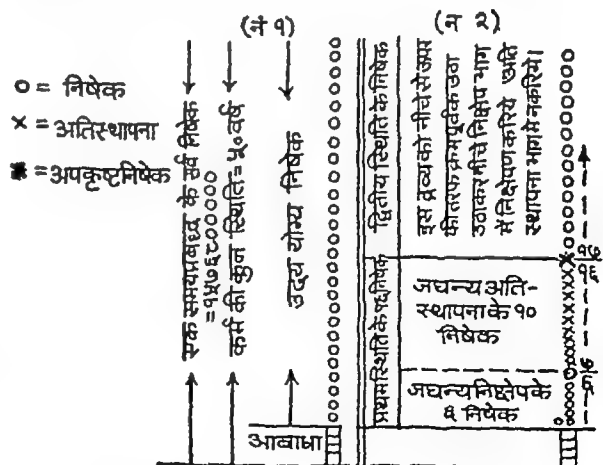 (नं १)
(न २)
० = निषेक
× = अतिस्थापना
= अपकृष्टनिषेक
एक समयप्रबद्ध के सर्व निषेक
=१५७६८०००००
कर्म की कुल स्थिति=५० वर्ष
उदय योग्य निषेक
आबाधा
द्वितीय स्थिति के निषेक
प्रथम स्थिति के १६ निषेक
इस द्रव्य को नीचे से ऊपर
की तरफ क्रमपूर्वक उठा
उठाकर नीचे निक्षेप भाग
में निक्षेपण करिये। अति
स्थापना भाग मे न करिये।
जघन्य अति-
स्थापना के १०
निषेक
जघन्य निक्षेप के
६ निषेक
१७
१६
७
६